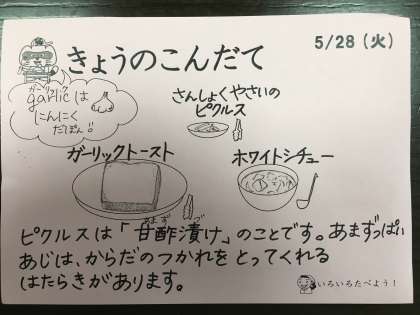 5/28（火）
きょうのこんだて
ガーリック
garlicは
にんにく
だぽん!!
さんしょくやさいの
ピクルス
ガーリックトースト
ホワイトシチュー
ピクルスは「甘酢漬け」のことです。あまずっぱい
あじは、からだのつかれをとってくれる
はたらきがあります。
いろいろたべよう！